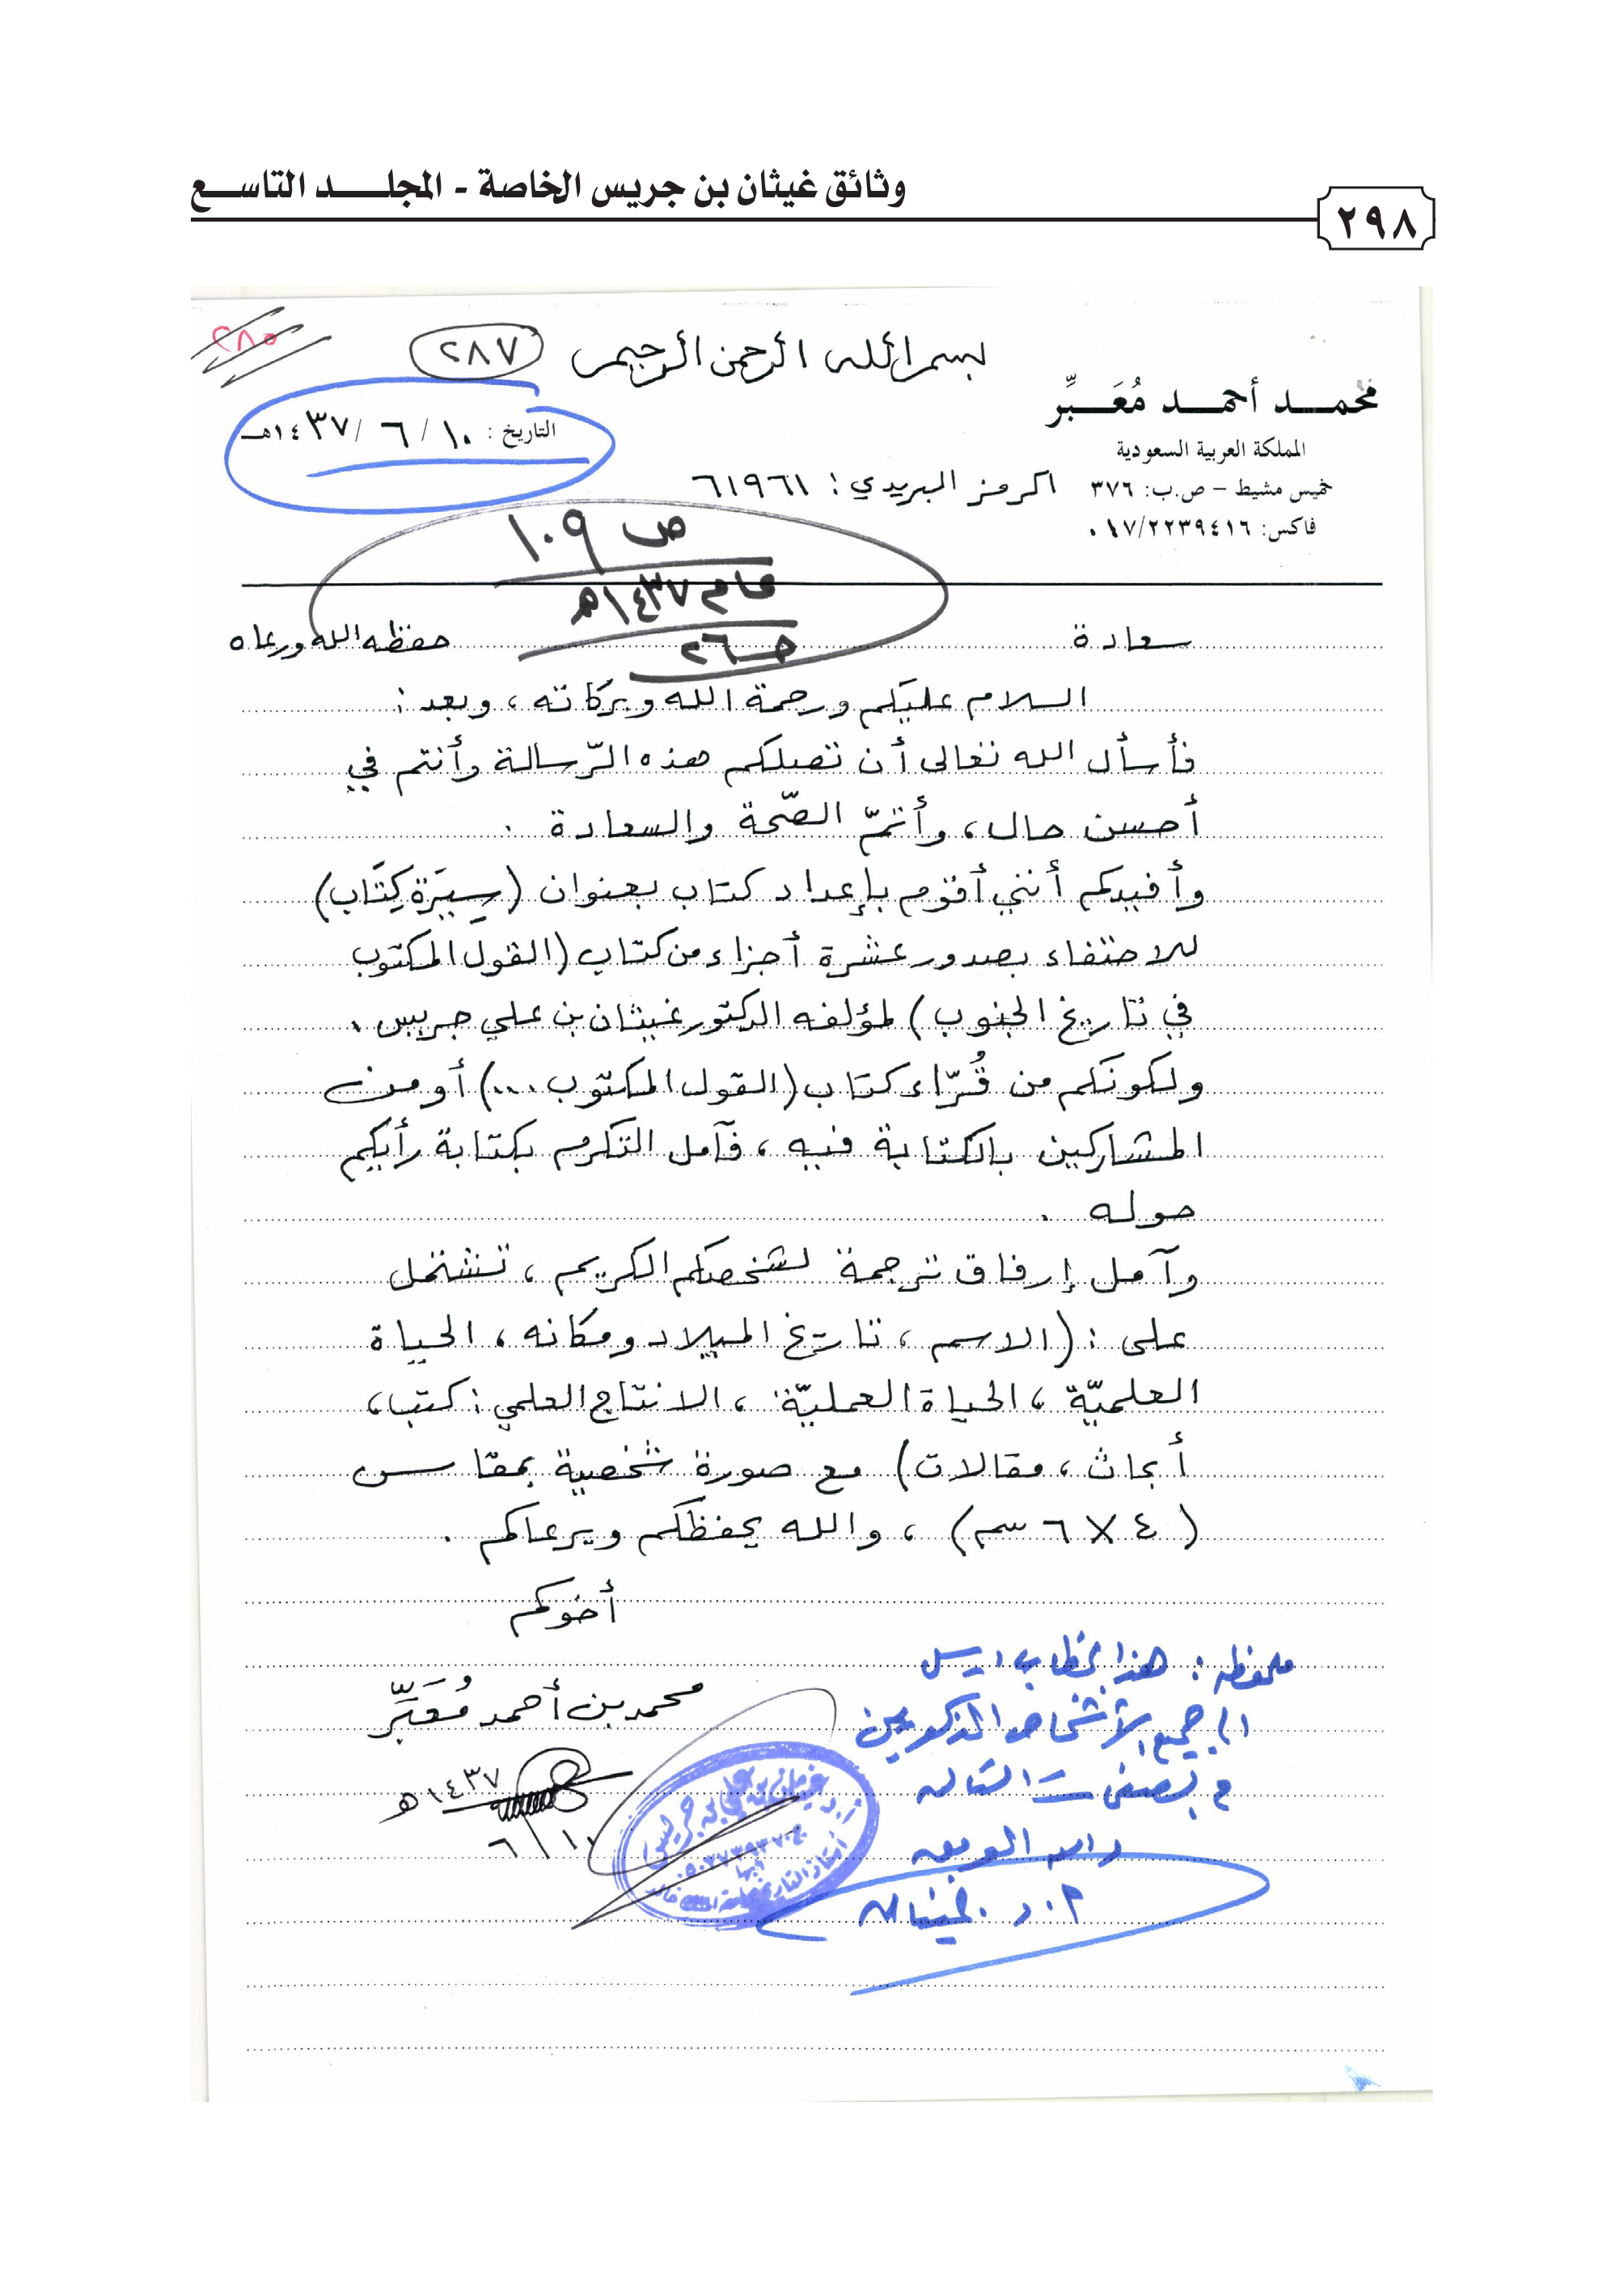 وثائق غيثان بن جريس الخاصة - المجلـــــد التاســـع
٢٩٨
٢٨٥
٢٨٧
بسم الله الرحمن الرحيم
محمـــد أحمـــد مُعَـــبِّر
التاريخ : ١٠ / ٦ / ١٤٣٧هـ
المملكة العربية السعودية
خميس مشيط - ص.ب: ٣٧٦ الرمز البريدي : ٦١٩٦١
فاكس: ٠١٧/٢٢٣٩٤١٦
ص ١٠٩
عام ١٤٣٧هـ
حـ ٢٦
سعادة حفظه الله ورعاه
السلام عليكم ورحمة الله وبركاته ، وبعد :
فأسأل الله تعالى أن تصلكم هذه الرّسالة وأنتم في
أحسن حال ، وأتمّ الصّحة والسعادة .
وأفيدكم أنني أقوم بإعداد كتاب بعنوان (سِيْرَة كِتَاب)
للاحتفاء بصدور عشرة أجزاء من كتاب (القول المكتوب
في تاريخ الجنوب) لمؤلفه الدكتور غيثان بن علي جريس .
ولكونكم من قُرّاء كتاب (القول المكتوب ...) أو من
المشاركين بالكتابة فيه ، فآمل التكرم بكتابة رأيكم
حوله .
وآمل إرفاق ترجمة لشخصكم الكريم ، تشتمل
على : (الاسم ، تاريخ الميلاد ومكانه ، الحياة
العلميّة ، الحياة العمليّة ، الانتاج العلمي : كتب ،
أبحاث ، مقالات) مع صورة شخصية بمقاس
(٤ × ٦ سم) ، والله يحفظكم ويرعاكم .
أخوكم
محمد بن أحمد مُعَبِّر
١٤٣٧هـ
٦/١٠
ملحوظة : هذا الخطاب أرسل
إلى جميع الأشخاص المذكورين
في الصفحات التالية
والله الموفق
أ.د. غيثان
أ.د. غيثان بن علي بن جريس
أبها
أستاذ التاريخ بجامعة الملك خالد